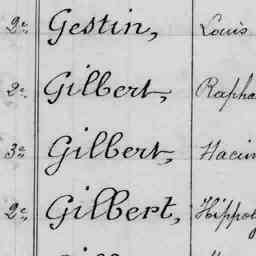 2e Gestin, Louis
2e Gilbert, Rapha
3e Gilbert, Hacin
2e Gilbert, Hippol